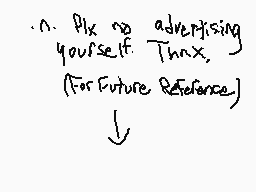 .n. Plx no advertising
yourself. Thnx.
(For Future Reference)